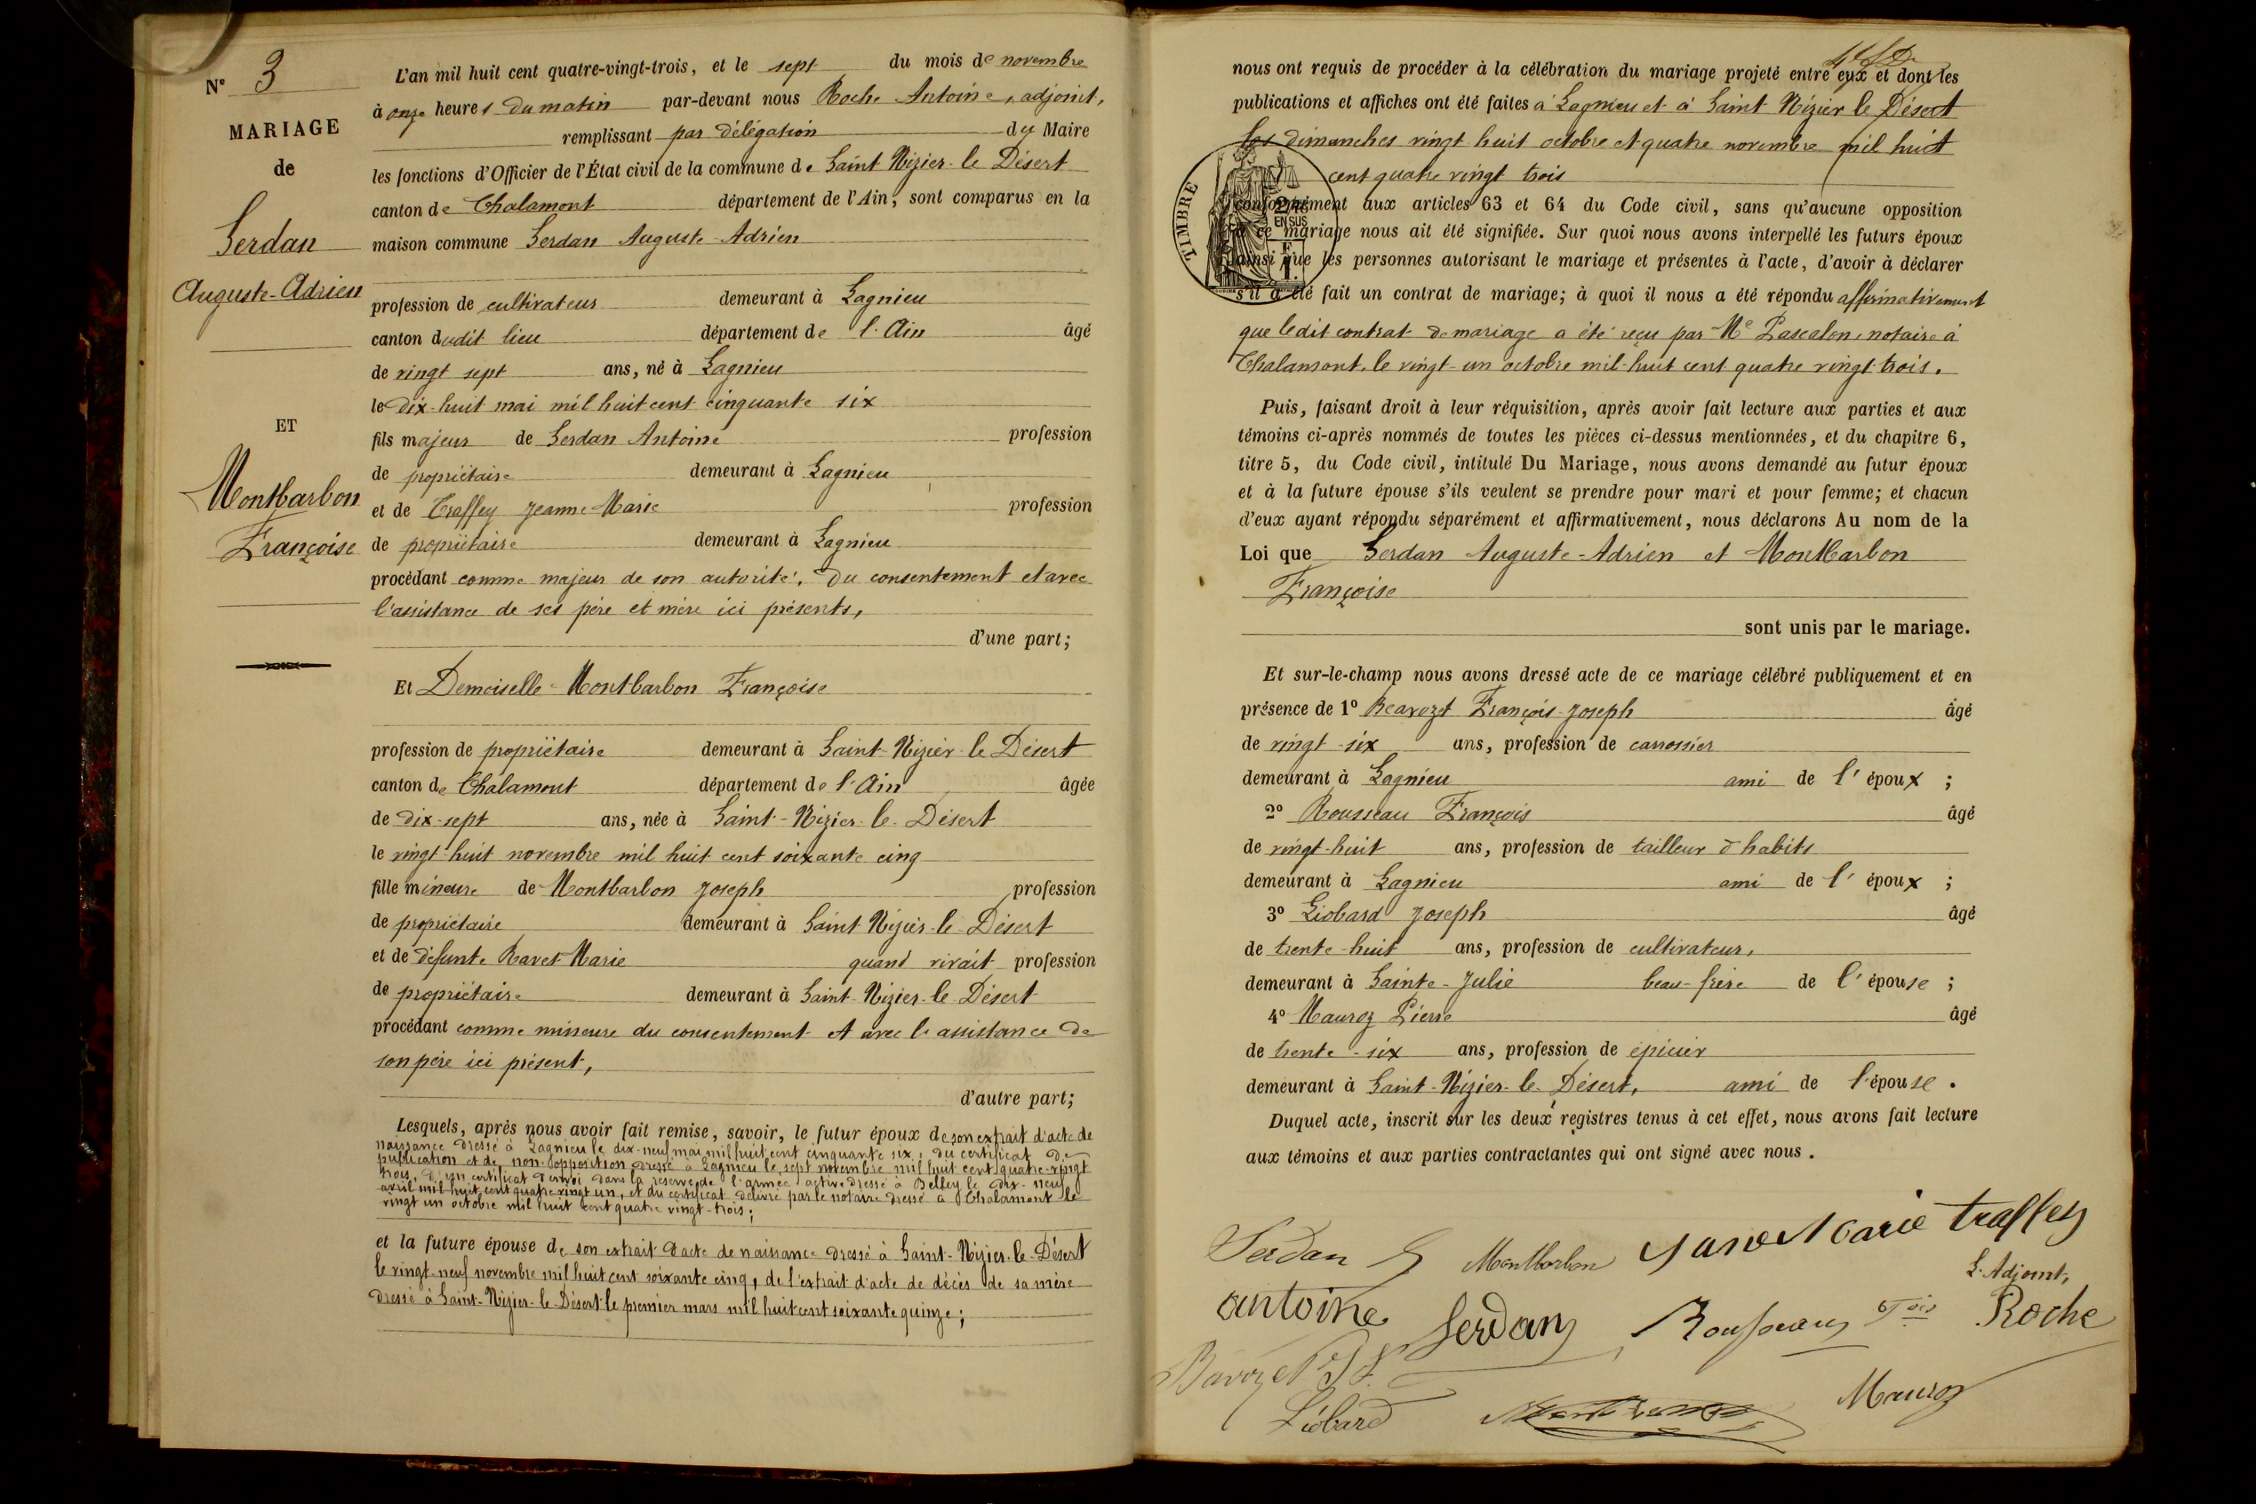 N° 3
MARIAGE
de
Serdan
Auguste-Adrien
ET
Montbarbon
Françoise
L'an mil huit cent quatre-vingt-trois, et le sept du mois de novembre
à onze heures du matin par-devant nous Roche Antoine, adjoint,
remplissant par délégation du Maire
les fonctions d'Officier de l'État civil de la commune de Saint Nizier-le Désert
canton de Chalamont département de l'Ain, sont comparus en la
maison commune Serdan Auguste-Adrien
profession de cultivateur demeurant à Lagnieu
canton dudit lieu département de l'Ain âgé
de vingt sept ans, né à Lagnieu
le dix-huit mai mil huit cent cinquante six
fils majeur de Serdan Antoine profession
de propriétaire demeurant à Lagnieu
et de Traffey Jeanne-Marie profession
de propriétaire demeurant à Lagnieu
procédant comme majeur de son autorité, du consentement et avec
l'assistance de ses père et mère ici présents,
d'une part;
Et Demoiselle Montbarbon Françoise
profession de propriétaire demeurant à Saint-Nizier-le Désert
canton de Chalamont département de l'Ain âgée
de dix-sept ans, née à Saint-Nizier-le-Désert
le vingt-huit novembre mil huit cent soixante cinq
fille mineure de Montbarbon Joseph profession
de propriétaire demeurant à Saint Nizier-le-Désert
et de défunte Ravet Marie quand vivait profession
de propriétaire demeurant à Saint-Nizier-le-Désert
procédant comme mineure du consentement et avec l'assistance de
son père ici présent,
d'autre part;
Lesquels, après nous avoir fait remise, savoir, le futur époux de son extrait d'acte de
naissance dressé à Lagnieu le dix-neuf mai mil huit cent cinquante six, du certificat de
publication et de non-opposition dressé à Lagnieu le sept novembre mil huit cent quatre-vingt
trois, d'un certificat d'envoi dans la réserve de l'armée active dressé à Belley le dix-neuf
avril mil huit cent quatre vingt un, et du certificat délivré par le notaire dressé à Chalamont le
vingt un octobre mil huit cent quatre vingt-trois;
et la future épouse de son extrait d'acte de naissance dressé à Saint-Nizier-le-Désert
le vingt-neuf novembre mil huit cent soixante cinq, de l'extrait d'acte de décès de sa mère
dressé à Saint-Nizier-le-Désert le premier mars mil huit cent soixante quinze;
nous ont requis de procéder à la célébration du mariage projeté entre eux et dont les
publications et affiches ont été faites à Lagnieu et à Saint Nizier le Désert
les dimanches vingt huit octobre et quatre novembre mil huit
cent quatre vingt trois
TIMBRE
EN SUS
conformément aux articles 63 et 64 du Code civil, sans qu'aucune opposition
à ce mariage nous ait été signifiée. Sur quoi nous avons interpellé les futurs époux
ainsi que les personnes autorisant le mariage et présentes à l'acte, d'avoir à déclarer
s'il a été fait un contrat de mariage; à quoi il nous a été répondu affirmativement
que ledit contrat de mariage a été reçu par Me Pascalon, notaire à
Chalamont, le vingt-un octobre mil-huit cent quatre vingt-trois.
Puis, faisant droit à leur réquisition, après avoir fait lecture aux parties et aux
témoins ci-après nommés de toutes les pièces ci-dessus mentionnées, et du chapitre 6,
titre 5, du Code civil, intitulé Du Mariage, nous avons demandé au futur époux
et à la future épouse s'ils veulent se prendre pour mari et pour femme; et chacun
d'eux ayant répondu séparément et affirmativement, nous déclarons Au nom de la
Loi que Serdan Auguste-Adrien et Montbarbon
Françoise
sont unis par le mariage.
Et sur-le-champ nous avons dressé acte de ce mariage célébré publiquement et en
présence de 1° François-Joseph âgé
de vingt-six ans, profession de carrossier
demeurant à Lagnieu ami de l'époux ;
2° Rousseau François âgé
de vingt-huit ans, profession de tailleur d'habits
demeurant à Lagnieu ami de l'époux ;
3° Liobard Joseph âgé
de trente-huit ans, profession de cultivateur,
demeurant à Sainte-Julie beau-frère de l'épouse ;
4° Mauroz Pierre âgé
de trente-six ans, profession de épicier
demeurant à Saint-Nizier-le-Désert, ami de l'épouse .
Duquel acte, inscrit sur les deux registres tenus à cet effet, nous avons fait lecture
aux témoins et aux parties contractantes qui ont signé avec nous .
Serdan Montbarbon Marie traffey
L'Adjoint,
antoine Serdan Rousseau Roche
Liobard Mauroz